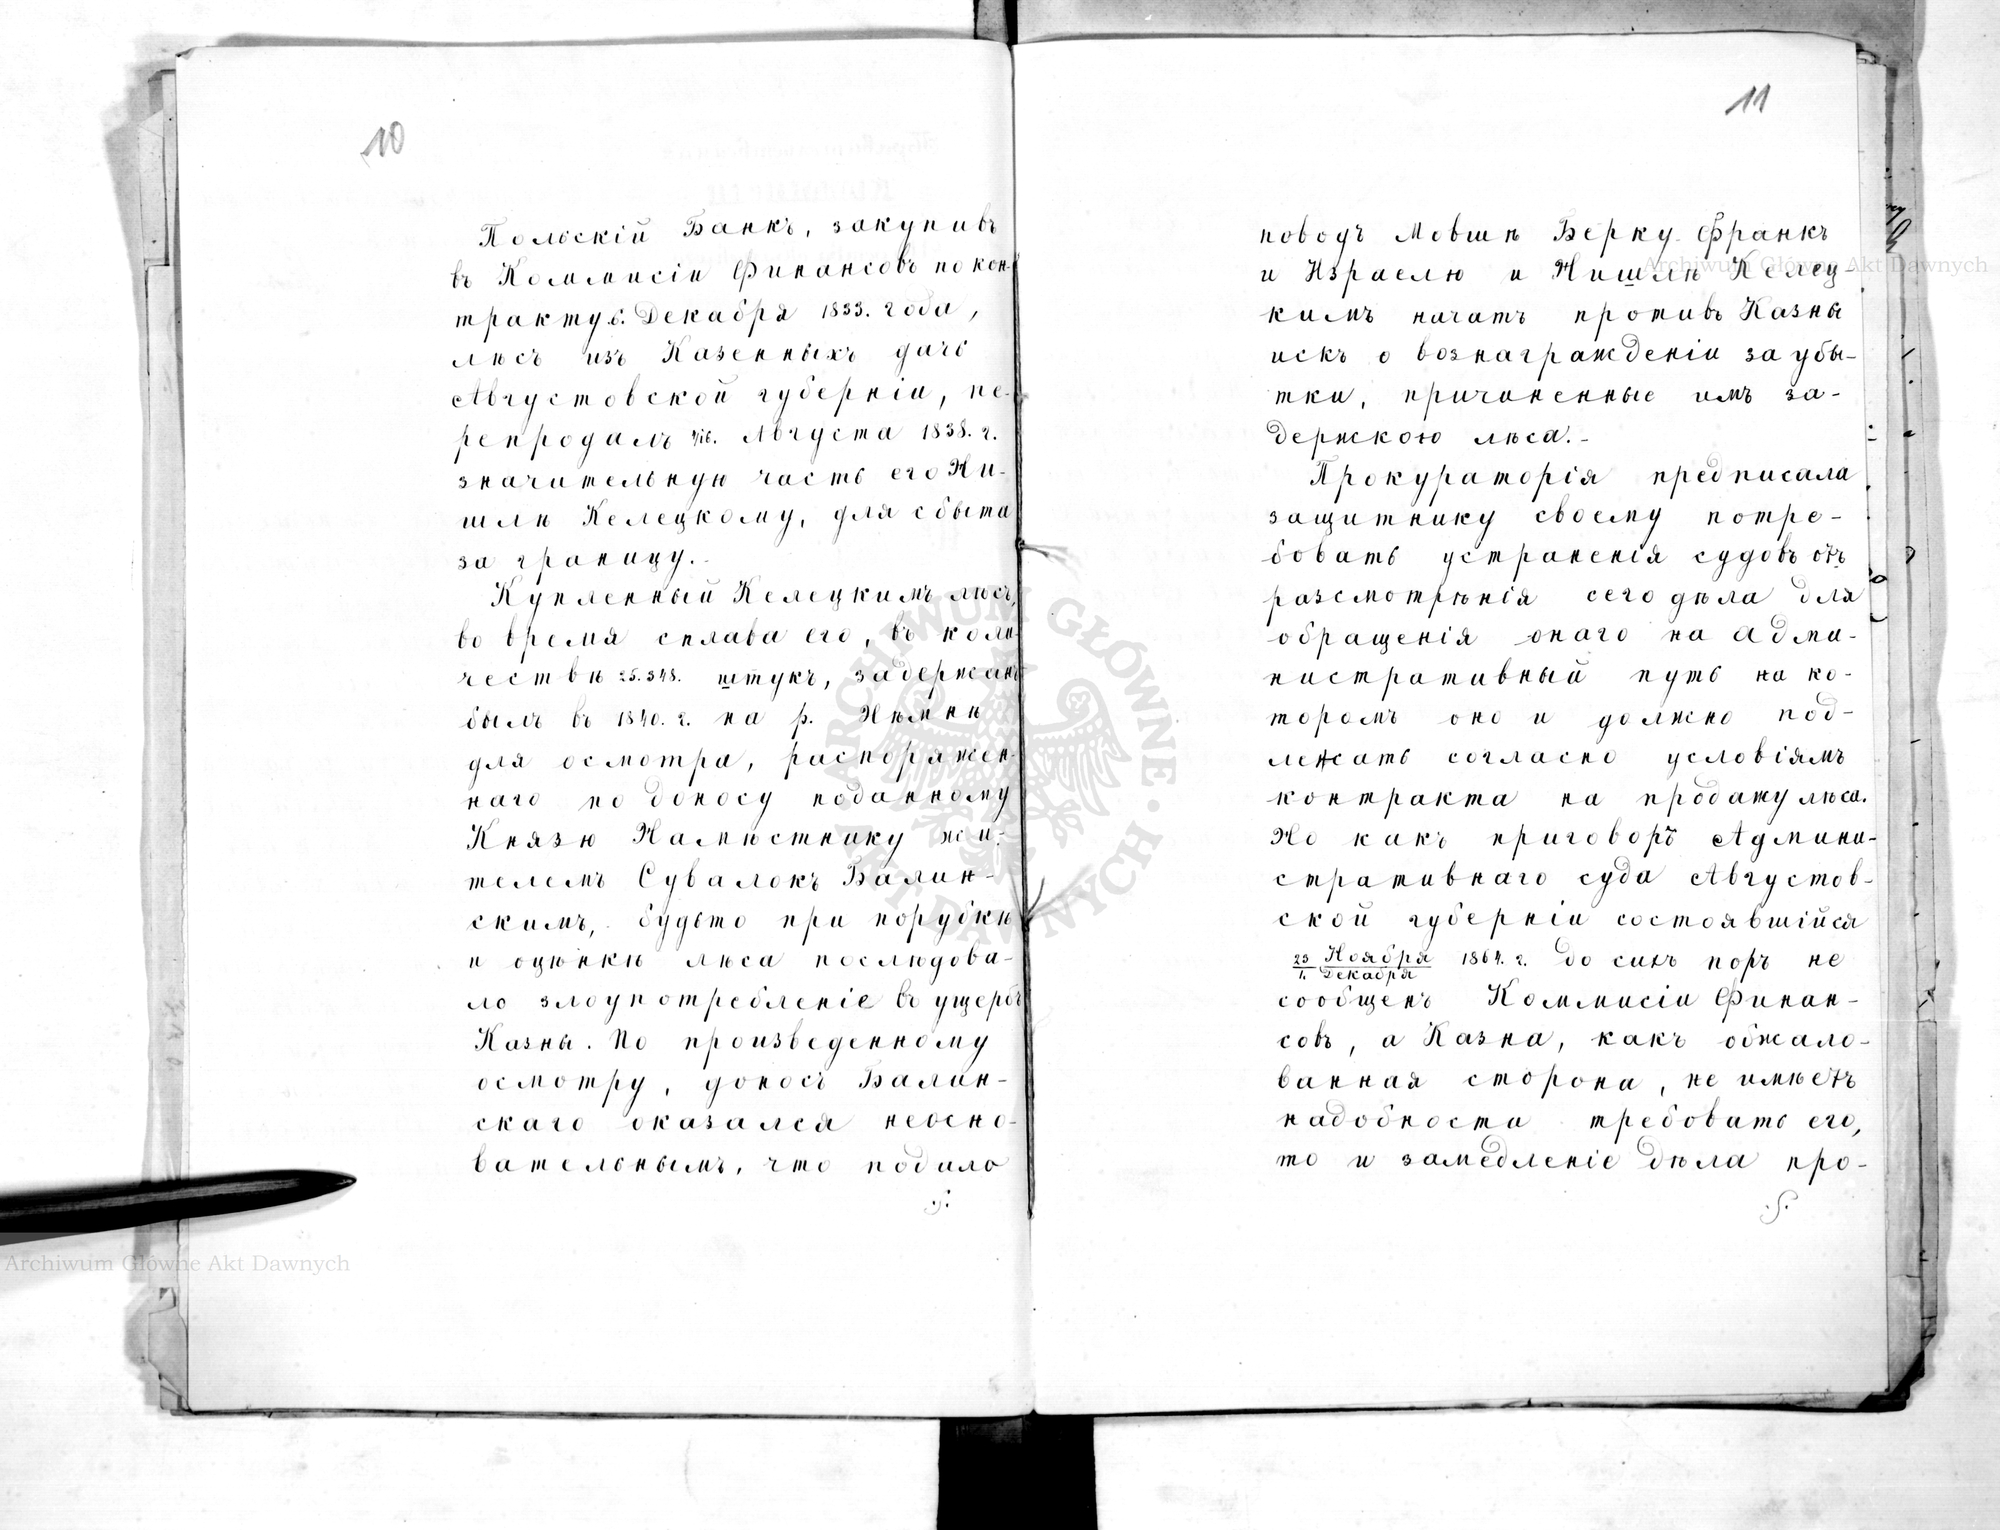 10
Польскій Банкъ, закупивъ
въ Коммисіи Финансовъ по кон-
тракту 6. Декабря 1833. года,
лѣсъ изъ Казенныхъ дачъ
Августовской губерніи, пе-
репродалъ 4/16. Августа 1838. г.
значительную часть его Ни-
шлѣ Келецкому, для сбыта
за границу.
Купленный Келецкимъ лѣсъ,
во время сплава его, въ коли-
чествѣ 25.348. штукъ, задержанъ
былъ въ 1840. г. на р. Нѣмнѣ
для осмотра, распоряжен-
наго по доносу поданному
Князю Намѣстнику жи-
телемъ Сувалокъ Балин-
скимъ, будьто при порубкѣ
и оцѣнкѣ лѣса послѣдова-
ло злоупотребленіе въ ущербъ
Казны. По произведенному
осмотру, доносъ Балин-
скаго оказался неосно-
вательнымъ, что подало
11
поводъ Мовшѣ Берку Франкъ
и Израелю и Нишлѣ Келец-
кимъ начать противъ Казны
искъ о вознагражденіи за убы-
тки, причиненные имъ за-
держкою лѣса.-
Прокураторія предписала
защитнику своему потре-
бовать устраненія судовъ отъ
разсмотрѣнія сего дѣла для
обращенія онаго на адми-
нистративный путь на ко-
торомъ оно и должно под-
лежать согласно условіямъ
контракта на продажу лѣса.
Но какъ приговоръ Админи-
стративнаго суда Августов-
ской губерніи состоявшійся
23 Ноября/1. Декабря 1864. г. до сихъ поръ не
сообщенъ Коммисіи Финан-
совъ, а Казна, какъ обжало-
ванная сторона, не имѣетъ
надобности требовать его,
то и замедленіе дѣла про-
Archiwum Główne Akt Dawnych
Archiwum Główne Akt Dawnych
ARCHIWUM GŁÓWNE AKT DAWNYCH